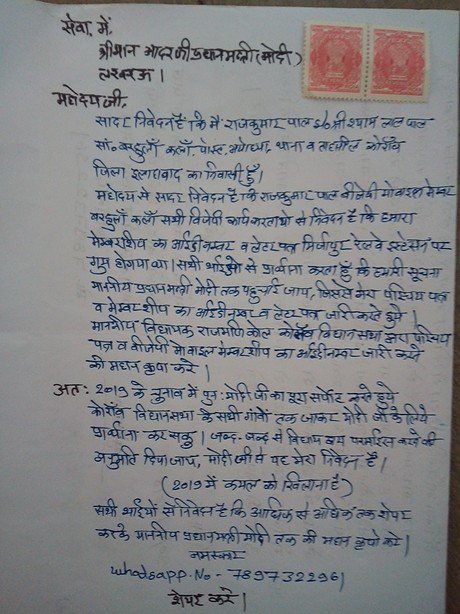 सेवा में,
श्रीमान आदरणीय प्रधानमन्त्री (मोदी)
लखनऊ।
महोदय जी,
सादर निवेदन है कि मैं राजकुमार पाल S/o श्री श्याम लाल पाल
सा० बरहुलाँ कलाँ, पोस्ट, अयोध्या, थाना व तहसील कोराँव
जिला इलाहाबाद का निवासी हूँ।
महोदय से सादर निवेदन है कि राजकुमार पाल बीजेपी मोबाइल मेम्बर
बरहुलाँ कलाँ सभी बिजेपी कार्यकरताओ से निवेदन है कि हमारा
मेम्बरशीप का आईडी नम्बर व लेटर पत्र मिर्जापुर रेलवे इस्टेसन पर
गुम होगया था। सभी भाईओ से प्रार्थना करता हूँ कि हमारी सूचना
माननीय प्रधानमन्त्री मोदी तक पहुचाई जाय, जिससे मेरा परिचय पत्र
व मेम्बरशीप का आईडी नम्बर व लेटर पत्र जारी करते हुये।
माननीय विधायक राजमणि कोल कोराँव विधानसभा द्वारा परिचय
पत्र व बीजेपी मोबाइल मेम्बरशीप का आईडी नम्बर जारी करने
की महान कृपा करे।
अतः 2019 के चुनाव में पुनः मोदी जी का पूरा सर्पोट करते हुये
कोराँव विधानसभा के सभी गांवो तक जाकर मोदी जी के लिये
प्रार्थना कर सकु। जल्द-जल्द से विधायक द्वारा की
अनुमति दिया जाय, मोदी जी से यह मेरा निवेदन है।
(2019 में कमल को खिलाना है)
सभी भाईयो से निवेदन है कि अधिक से अधिक तक शेयर
करके माननीय प्रधानमन्त्री मोदी तक की महान कृपा करे।
नमस्कार
Whatsapp. No - 7897322961
शेयर करे।